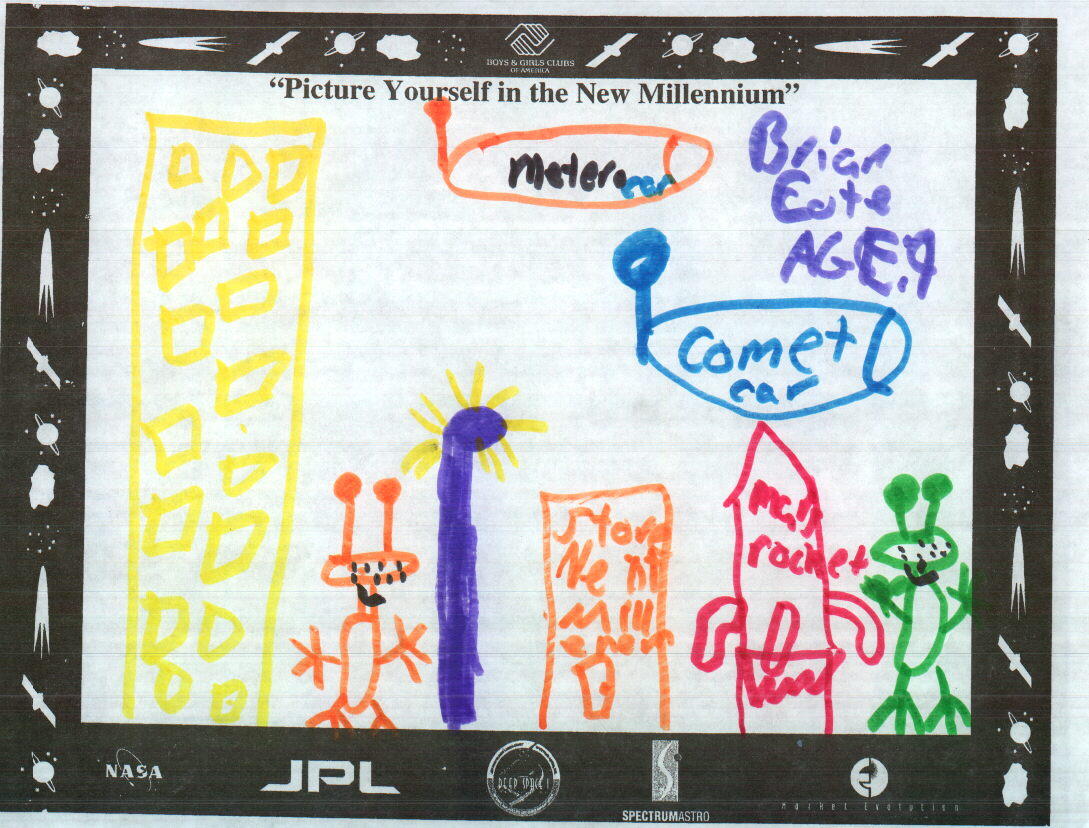 BOYS & GIRLS CLUBS
OF AMERICA
"Picture Yourself in the New Millennium"
Meter
car
Brian
Eate
AGE.9
Comet
car
Store
Next
Mill
eneun
Mars
rocket
NASA
JPL
DEEP SPACE 1
SPECTRUMASTRO
Market Evolution